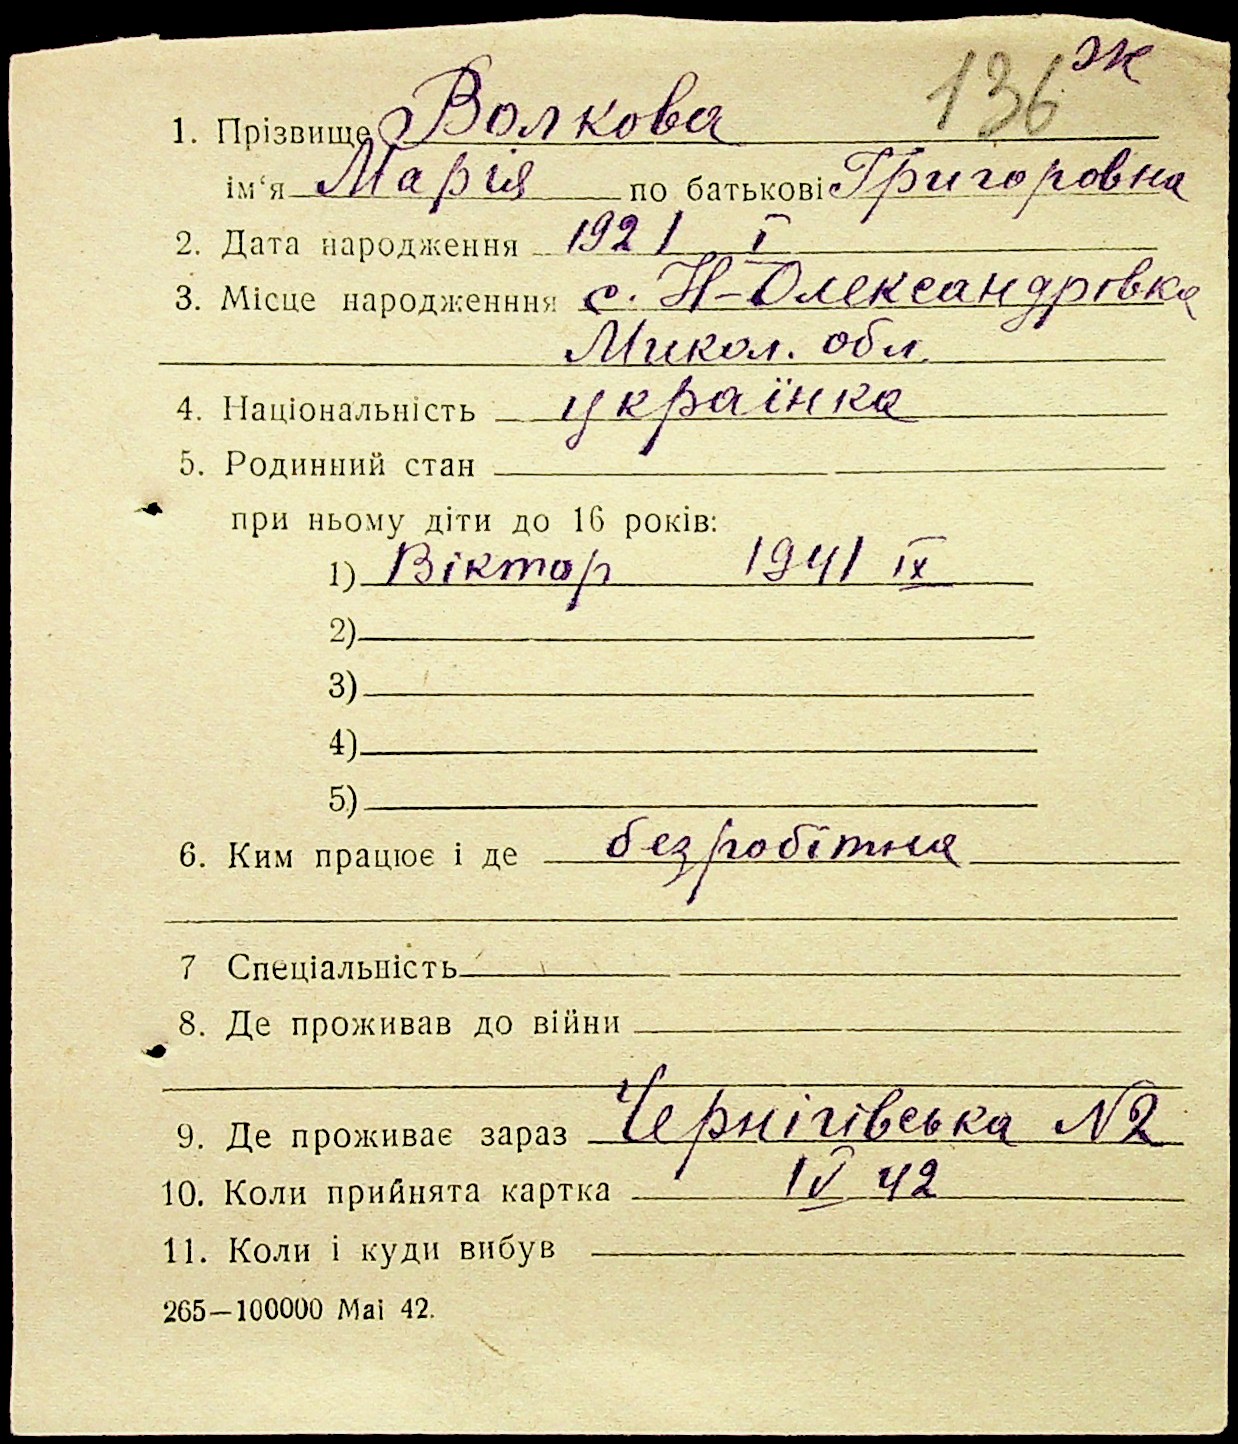 136 ж
1. Прізвище Волкова
ім‘я Марія по батькові Григоровна
2. Дата народження 1921 I
3. Місце народженння с. Н-Олександрівка
Микол. обл.
4. Національність українка
5. Родинний стан
при ньому діти до 16 років:
1) Віктор 1941 IX
2)
3)
4)
5)
6. Ким працює і де безробітна
7 Спеціальність
8. Де проживав до війни
9. Де проживає зараз Чернігівська N2
10. Коли прийнята картка IV 42
11. Коли і куди вибув
265—100000 Mai 42.